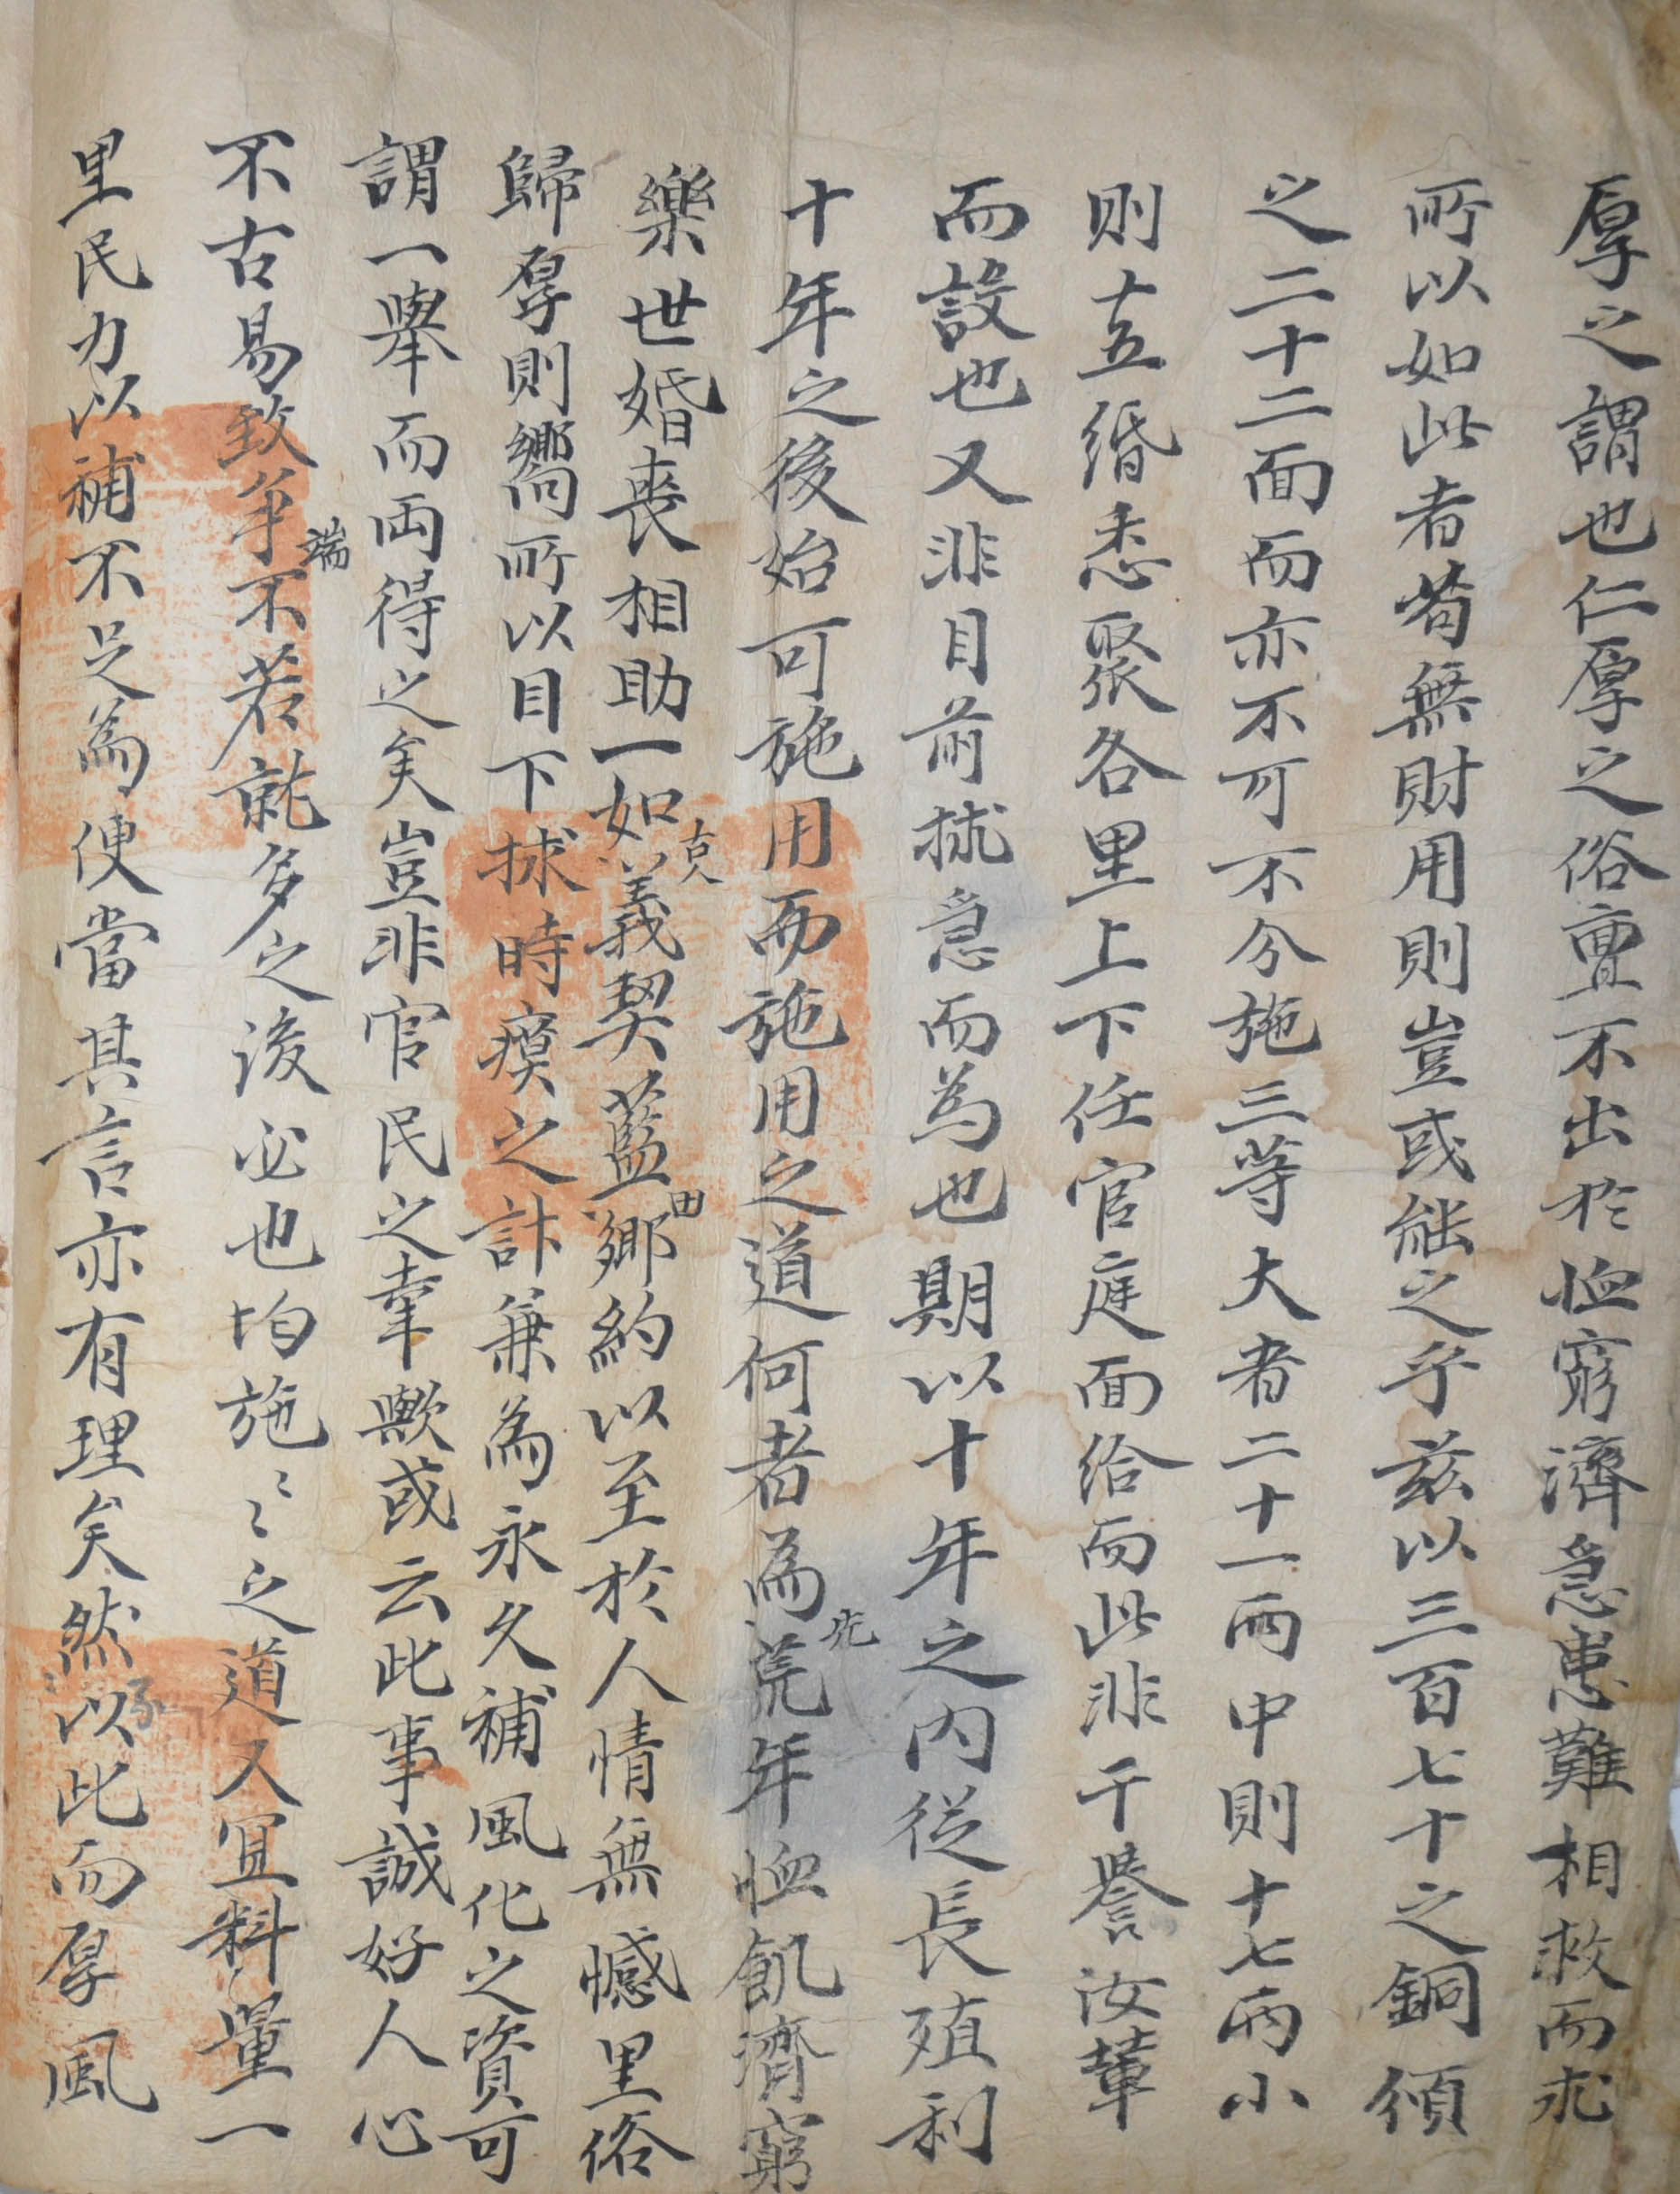 厚之謂也仁厚之俗亶不出於恤窮濟急患難相救而求
所以如此者苟無財用則豈或能之乎玆以三百七十之銅傾
之二十二面而亦不可不分施三等大者二十一兩中則十七兩小
則十五緡悉聚各里上下任官庭面給而此非干譽汝輩
而設也又非目前捄急而為也期以十年之內從長殖利
十年之後始可施用而施用之道何者為荒年恤飢濟窮
樂世婚喪相助一如義契藍鄉約以至於人情無憾里俗
克
田
歸厚則嚮所以目下捄時瘼之計兼為永久補風化之資可
謂一舉而両得之矣豈非官民之幸歟或云此事誠好人心
不古易致爭不若就多之後必也均施〻〻之道又宜料量一
端
里民力以補不足為便當其言亦有理矣然以此而厚風